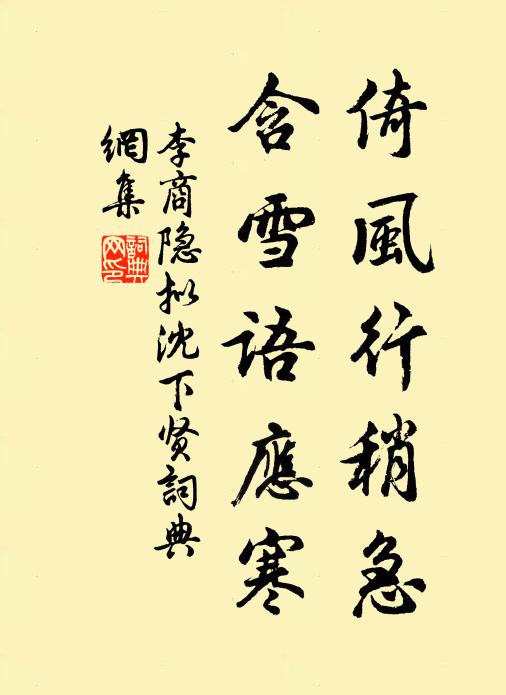 倚風行稍急
含雪語應寒
李商隐拟沈下贤詞典
網集
詞典
网印